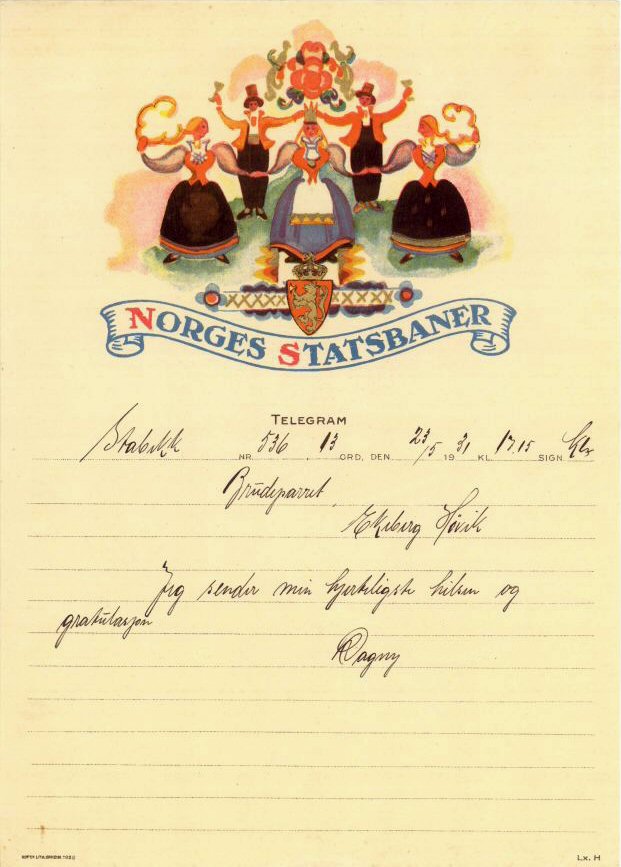 NORGES STATSBANER
TELEGRAM
Stabekk NR. 536 , 13 ORD, DEN 23/5 1931 KL. 17.15 SIGN.
Brudeparret,
Ekeberg Høvik
Jeg sender min hjerteligste hilsen og
gratulasjon
Dagny
Lx. H